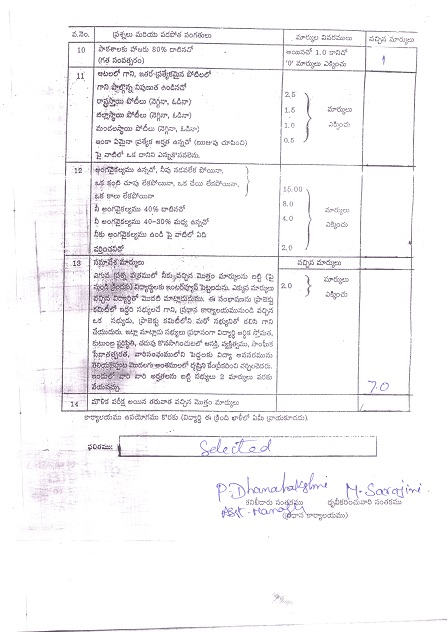 వ.నెం. ప్రశ్నలు మరియు పరపోత సంగతులు మార్కుల వివరములు వచ్చిన మార్కులు
10 పాఠశాలకు హాజరు 80% దాటినచో అయినచో 1.0 కానిచో
(గత సంవత్సరం) '0' మార్కులు ఎక్కించు 1
11 ఆటలలో గాని, ఇతర ప్రత్యేకమైన పోటీలలో
గాని పాల్గొన్న నిపుణత ఉండినచో
రాష్ట్రస్థాయి పోటీలు (నెగ్గినా, ఓడినా) 2.5
జిల్లాస్థాయి పోటీలు (నెగ్గినా, ఓడినా) 1.5 మార్కులు
మండలస్థాయి పోటీలు (నెగ్గినా, ఓడినా) 1.0 ఎక్కించు
ఇంకా ఏమైనా ప్రత్యేక అర్హత ఉన్నచో (ఋజువు చూపించి) 0.5
పై వాటిలో ఒక దానిని ఎన్నుకొనవలెను.
12 అంగవైకల్యము ఉన్నచో, నీవు నడవలేక పోయినా,
ఒక కంటి చూపు లేకపోయినా, ఒక చేయి లేకపోయినా, 15.00
ఒక కాలు లేకపోయినా 8.0
నీ అంగవైకల్యము 40% దాటినచో 4.0 మార్కులు
నీ అంగవైకల్యము 40-30% మధ్య ఉన్నచో ఎక్కించు
నీకు అంగవైకల్యము ఉండి పై వాటిలో ఏది
వర్తించనిచో 2.0
13 సమావేశ మార్కులు వచ్చిన మార్కులు
ఎగువ వచ్చిన మొత్తం మార్కులను బట్టి (పై
నుండి క్రిందకు) విద్యార్థులకు ఇంటర్వ్యూకు 2.0 మార్కులు
వచ్చిన విద్యార్థితో మొదటి మాట్లాడుదుము. ఈ సంభాషణను ప్రాజెక్టు ఎక్కించు
కమిటీలో ఇద్దరి సభ్యులచే గాని, ప్రధాన కార్యాలయమునుండి వచ్చిన
ఒక సభ్యుడు, ప్రాజెక్టు కమిటీలోని మరో సభ్యునితో కలిసి గాని
చేయుదురు. ఇట్లా మాట్లాడు సభ్యులు ప్రధానంగా విద్యార్థి ఆర్థిక స్తోమత,
కుటుంబ పరిస్థితి, చదువు కొనసాగించుటలో ఆసక్తి, వ్యక్తిత్వము, సాంఘిక
సేవాతత్పరత, వారిసంఘములోని పెద్దలకు విద్యా అవసరమును
తెలియజెప్పుట మొదలగు అంశములలో దృష్టిని కేంద్రీకరించి చర్చించెదరు.
ఇందులో వారి వారి అర్హతలను బట్టి సభ్యులు 2 మార్కులు వరకు
వేయవచ్చు 70
14 మౌళిక పరీక్ష అయిన తరువాత వచ్చిన మొత్తం మార్కులు
కార్యాలయము ఉపయోగము కొరకు (విద్యార్థి ఈ క్రింది ఖాళీలో ఏమీ వ్రాయకూడదు).
ఫలితము: Selected
P. Dhanalakshmi M. Sarojini
సంతకము ధృవీకరించువారి సంతకము
Asst. Manager (ప్రధాన కార్యాలయము)